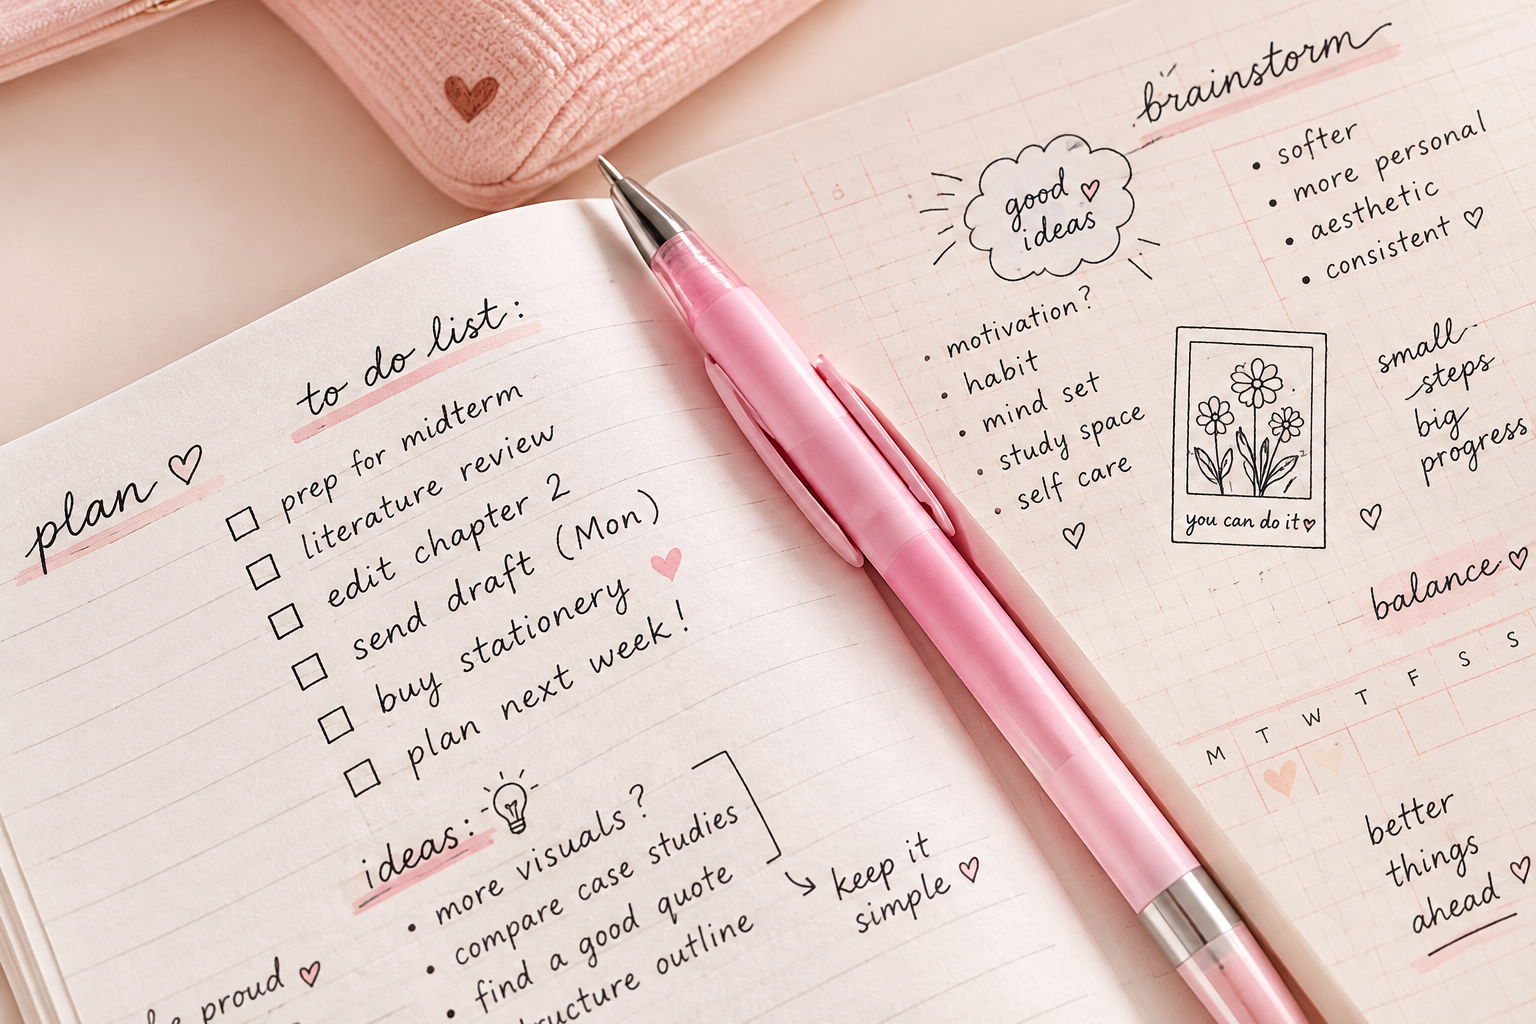 plan
to do list:
prep for midterm
literature review
edit chapter 2
send draft (Mon)
buy stationery
plan next week!
ideas:
more visuals?
compare case studies
find a good quote
outline
keep it
simple
proud
brainstorm
good
ideas
softer
more personal
aesthetic
consistent
motivation?
habit
mind set
study space
self care
you can do it
small
steps
big
progress
balance
M T W T F S S
better
things
ahead